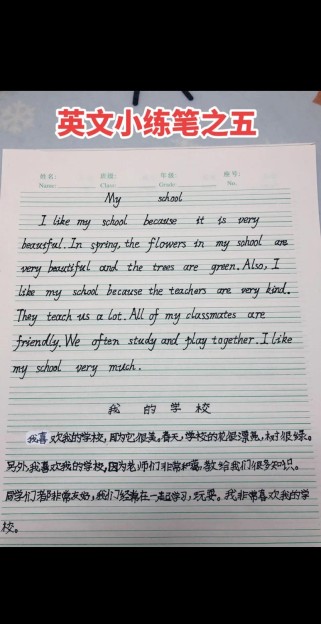 英文小练笔之五
姓名: 班级: 年级: 座号:
Name: Class: Grade: No:
My school
I like my school because it is very
beautiful. In spring, the flowers in my school are
very beautiful and the trees are green. Also, I
like my school because the teachers are very kind.
They teach us a lot. All of my classmates are
friendly. We often study and play together. I like
my school very much.
我的学校
我喜欢我的学校,因为它很美。春天,学校的花很漂亮,树很绿。
另外,我喜欢我的学校,因为老师们非常和蔼,教给我们很多知识。
同学们都非常友好,我们经常在一起学习,玩耍。我非常喜欢我的学
校。